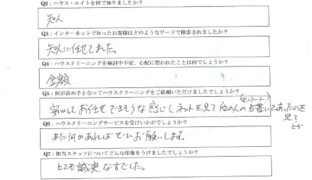 Q2：ハウス・エイトを何で知りましたか？
知人
Q3：インターネットで知ったお客様はどのようなワードで検索されましたか？
知人に任せてました。
Q4：ハウスクリーニングを検討中不安、心配に思われたことは何でしょうか？
金額
Q5：何が決め手となってハウスクリーニングをご依頼いただけましたでしょうか？
安心してお任せできそうな感じ。ネットを見て他の人の
アンケート
を書いてあったのを
見て
とか
Q6：ハウスクリーニングサービスを受けいかがでしょうか？
また何かあればぜひお願いします。
Q7：担当スタッフについてどんな印象をうけましたでしょうか？
とても誠実な方でした。